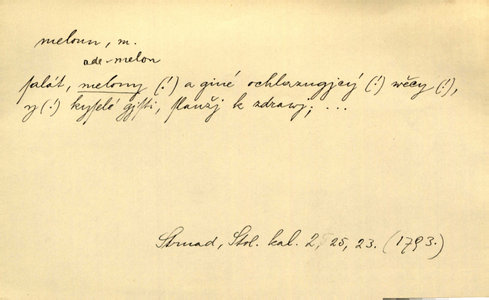 meloun, m.
ade-melon
salát, melony (!) a giné ochlazugjcý (!) wěcy (!),
y (!) kyselé gjsti, slaužj k zdrawj; ...
Strnad, Stol. kal. 2, 25, 23. (1793.)